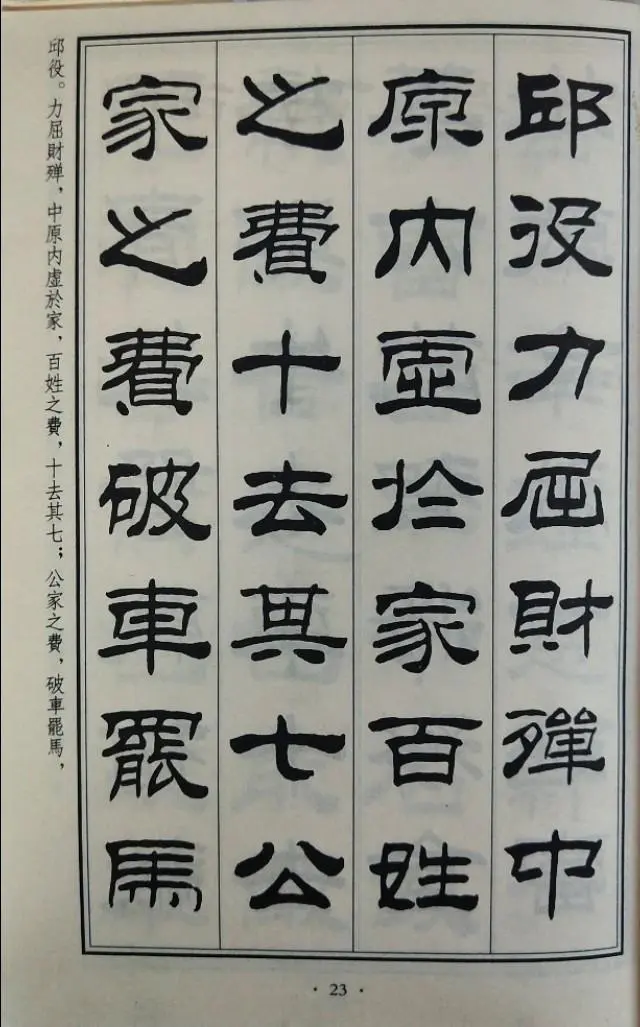 邱役力屈財殫中
原内虛於家百姓
之費十去其七公
家之費破車罷馬
邱役。力屈財殫，中原内虛於家，百姓之費，十去其七；公家之費，破車罷馬，
· 23 ·